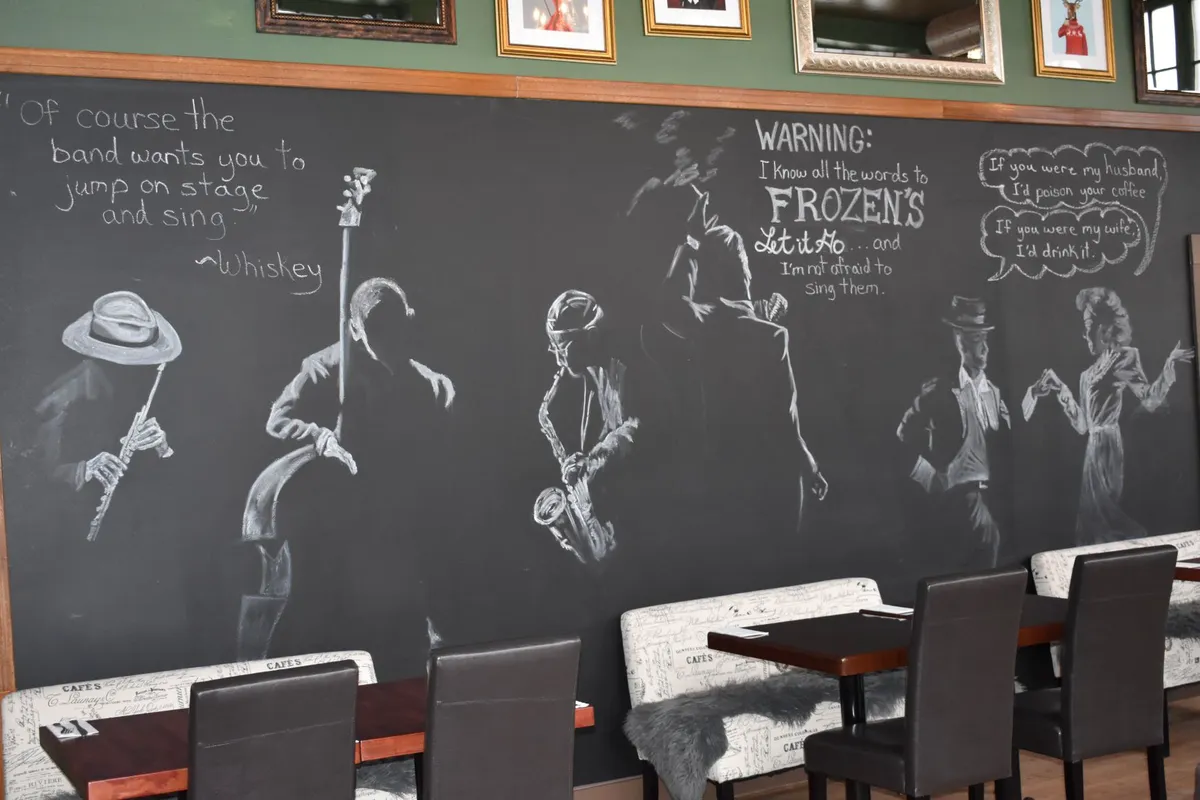 "Of course the
band wants you to
jump on stage
and sing."
~Whiskey
WARNING:
I know all the words to
FROZEN'S
Let it Go...and
I'm not afraid to
sing them.
If you were my husband,
I'd poison your coffee
If you were my wife,
I'd drink it.
CAFÉS
CAFÉS
CAFÉS